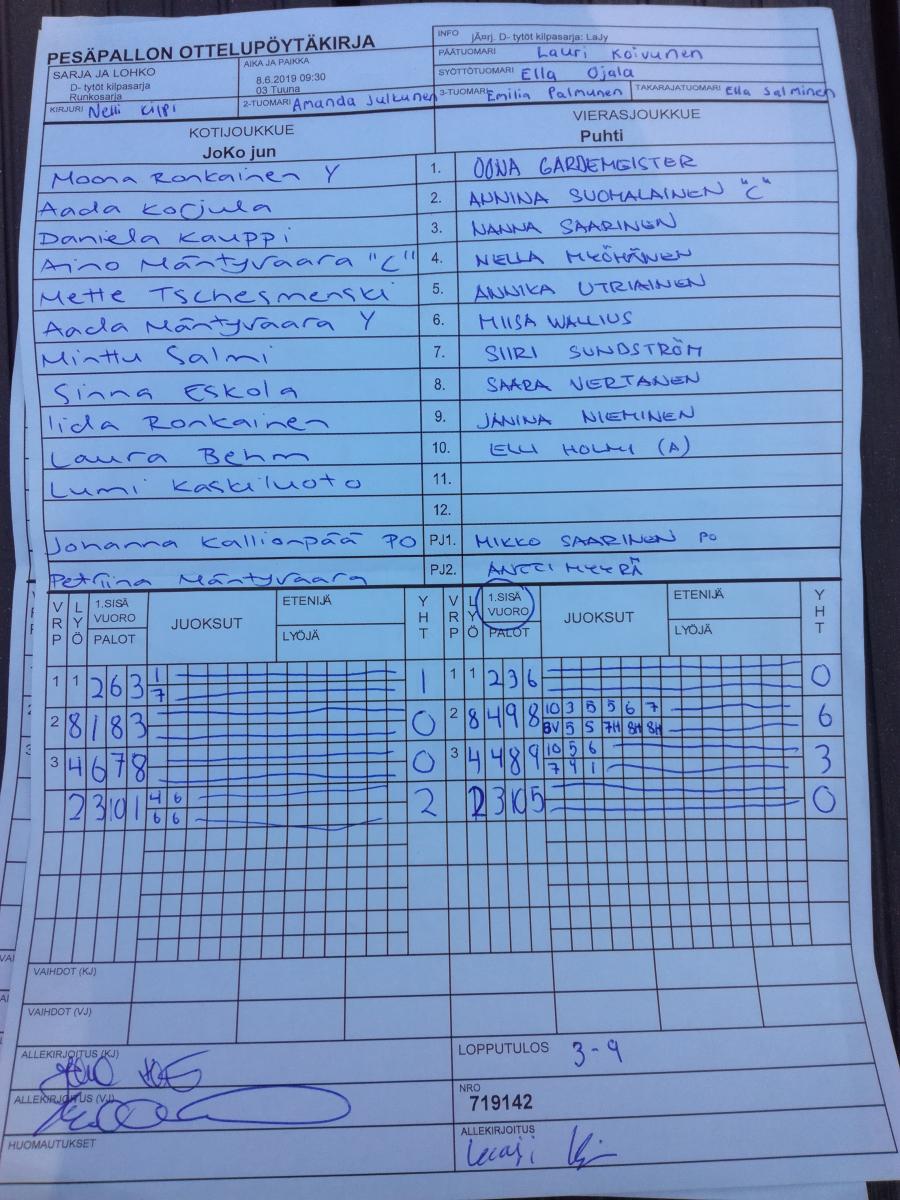 PESÄPALLON OTTELUPÖYTÄKIRJA
INFO jÄ¤rj. D- tytöt kilpasarja: LaJy
PÄÄTUOMARI Lauri Koivunen
SARJA JA LOHKO
D- tytöt kilpasarja
Runkosarja
AIKA JA PAIKKA
8.6.2019 09:30
03 Tuuna
SYÖTTÖTUOMARI Ella Ojala
KIRJURI Nelli Kilpi
2-TUOMARI Amanda Julkunen
3-TUOMARI Emilia Palmunen
TAKARAJATUOMARI Ella Salminen
KOTIJOUKKUE
JoKo jun
VIERASJOUKKUE
Puhti
Moona Ronkainen Y 1. OONA GARDEMEISTER
Aada Korjula 2. ANNINA SUOMALAINEN "C"
Daniela Kauppi 3. NANNA SAARINEN
Aino Mäntyvaara "C" 4. NELLA MYÖHÄNEN
Mette Tschesmenski 5. ANNIKA UTRIAINEN
Aada Mäntyvaara Y 6. MIISA WALLIUS
Minttu Salmi 7. SIIRI SUNDSTRÖM
Sinna Eskola 8. SAARA VERTANEN
Iida Ronkainen 9. JANINA NIEMINEN
Laura Behm 10. ELLI HOLMI (A)
Lumi Kaskiluoto 11.
12.
Johanna Kallionpää PO PJ1. MIKKO SAARINEN PO
Petriina Mäntyvaara PJ2. ANTTI MYYRÄ
VRP LYÖ 1.SISÄ VUORO PALOT JUOKSUT ETENIJÄ LYÖJÄ YHT VRP LYÖ 1.SISÄ VUORO PALOT JUOKSUT ETENIJÄ LYÖJÄ YHT
1 1 2 6 3 1 1 1 1 2 3 6 0
7
2 8 1 8 3 0 2 8 4 9 8 10 3 5 5 6 7 6
8V 5 5 7H 8H 8H
3 4 6 7 8 0 3 4 4 8 9 10 5 6 3
7 9 1
2 3 10 1 4 6 2 2 3 10 5 0
6 6
VAIHDOT (KJ)
VAIHDOT (VJ)
ALLEKIRJOITUS (KJ)
LOPPUTULOS 3-9
ALLEKIRJOITUS (VJ)
NRO
719142
HUOMAUTUKSET
ALLEKIRJOITUS